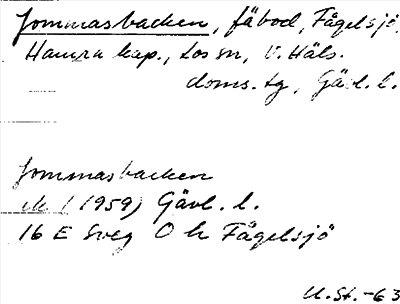 Jommasbacken, fäbod, Fågelsjö,
Hamra kap., Los sn, V. Häls.
doms. tg, Gävl. l.
Jommasbacken
ek (1959) Gävl. l.
16 E Sveg O h Fågelsjö
U. St. -63